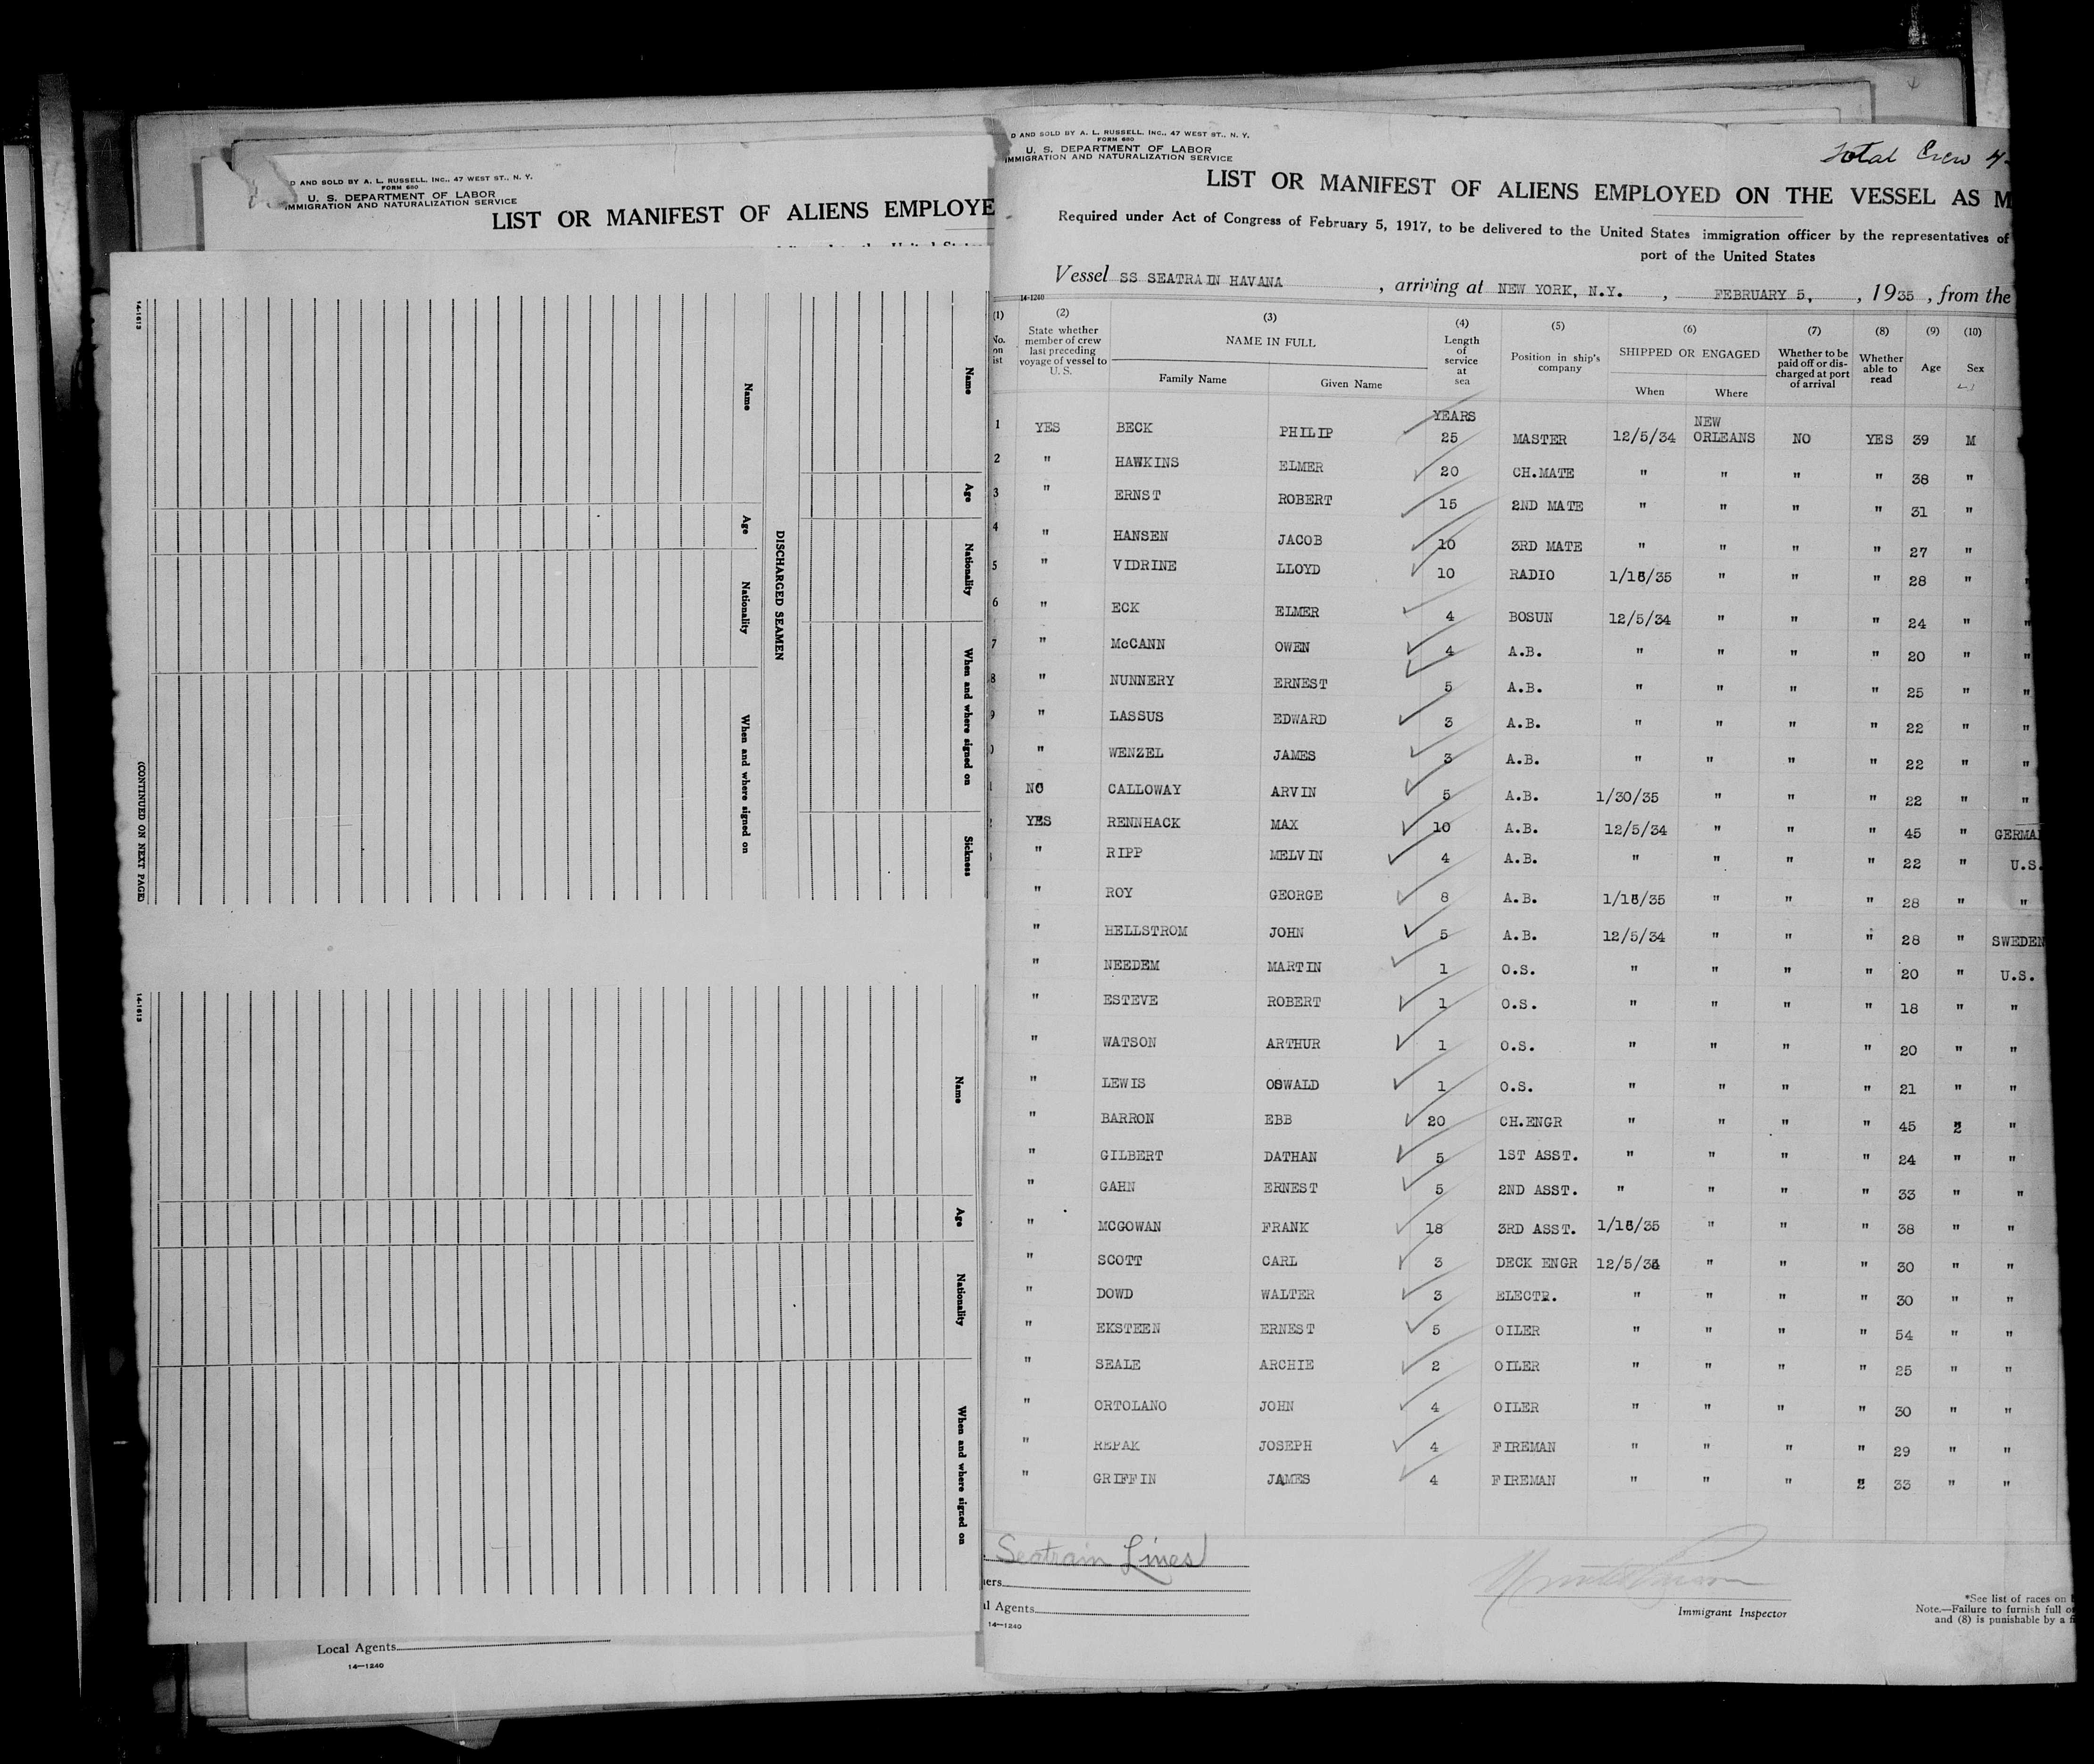 D AND SOLD BY A. L. RUSSELL, INC., 47 WEST ST., N. Y.
FORM 680
U. S. DEPARTMENT OF LABOR
IMMIGRATION AND NATURALIZATION SERVICE
LIST OR MANIFEST OF ALIENS EMPLOYE
14-1613
Name
Age
Nationality
When and where signed on
Sickness
DISCHARGED SEAMEN
Name
Age
Nationality
When and where signed on
(CONTINUED ON NEXT PAGE)
14-1613
Name
Age
Nationality
When and where signed on
Local Agents
14—1240
D AND SOLD BY A. L. RUSSELL, INC., 47 WEST ST., N. Y.
FORM 680
U. S. DEPARTMENT OF LABOR
IMMIGRATION AND NATURALIZATION SERVICE
Total Crew 4
LIST OR MANIFEST OF ALIENS EMPLOYED ON THE VESSEL AS M
Required under Act of Congress of February 5, 1917, to be delivered to the United States immigration officer by the representatives of
port of the United States
Vessel SS SEATRAIN HAVANA, arriving at NEW YORK, N.Y., FEBRUARY 5, 1935, from the
14-1240
(1) (2) (3) (4) (5) (6) (7) (8) (9) (10)
No. on ist State whether member of crew last preceding voyage of vessel to U. S. NAME IN FULL Family Name Given Name Length of service at sea Position in ship's company SHIPPED OR ENGAGED When Where Whether to be paid off or discharged at port of arrival Whether able to read Age Sex
YEARS NEW
1 YES BECK PHILIP 25 MASTER 12/5/34 ORLEANS NO YES 39 M
2 " HAWKINS ELMER 20 CH.MATE " " " " 38 "
3 " ERNST ROBERT 15 2ND MATE " " " " 31 "
4 " HANSEN JACOB 10 3RD MATE " " " " 27 "
5 " VIDRINE LLOYD 10 RADIO 1/15/35 " " " 28 " "
6 " ECK ELMER 4 BOSUN 12/5/34 " " " 24 " "
7 " McCANN OWEN 4 A.B. " " " " 20 " "
8 " NUNNERY ERNEST 5 A.B. " " " " 25 " "
9 " LASSUS EDWARD 3 A.B. " " " " 22 " "
0 " WENZEL JAMES 3 A.B. " " " " 22 " "
1 NO CALLOWAY ARVIN 5 A.B. 1/30/35 " " " 22 " "
2 YES RENNHACK MAX 10 A.B. 12/5/34 " " " 45 " GERMAN
" RIPP MELVIN 4 A.B. " " " " 22 " U.S.
" ROY GEORGE 8 A.B. 1/15/35 " " " 28 " "
" HELLSTROM JOHN 5 A.B. 12/5/34 " " " 28 " SWEDEN
" NEEDEM MARTIN 1 O.S. " " " " 20 " U.S.
" ESTEVE ROBERT 1 O.S. " " " " 18 " "
" WATSON ARTHUR 1 O.S. " " " " 20 " "
" LEWIS OSWALD 1 O.S. " " " " 21 " "
" BARRON EBB 20 CH.ENGR " " " " 45 " "
" GILBERT DATHAN 5 1ST ASST. " " " " 24 " "
" GAHN ERNEST 5 2ND ASST. " " " " 33 " "
" MCGOWAN FRANK 18 3RD ASST. 1/15/35 " " " 38 " "
" SCOTT CARL 3 DECK ENGR 12/5/34 " " " 30 " "
" DOWD WALTER 3 ELECTR. " " " " 30 " "
" EKSTEEN ERNEST 5 OILER " " " " 54 " "
" SEALE ARCHIE 2 OILER " " " " 25 " "
" ORTOLANO JOHN 4 OILER " " " " 30 " "
" REPAK JOSEPH 4 FIREMAN " " " " 29 " "
" GRIFFIN JAMES 4 FIREMAN " " " 2 33 " "
Seatrain Lines
ners
l Agents
14—1240
Immigrant Inspector
*See list of races on
Note.—Failure to furnish full o
and (8) is punishable by a f